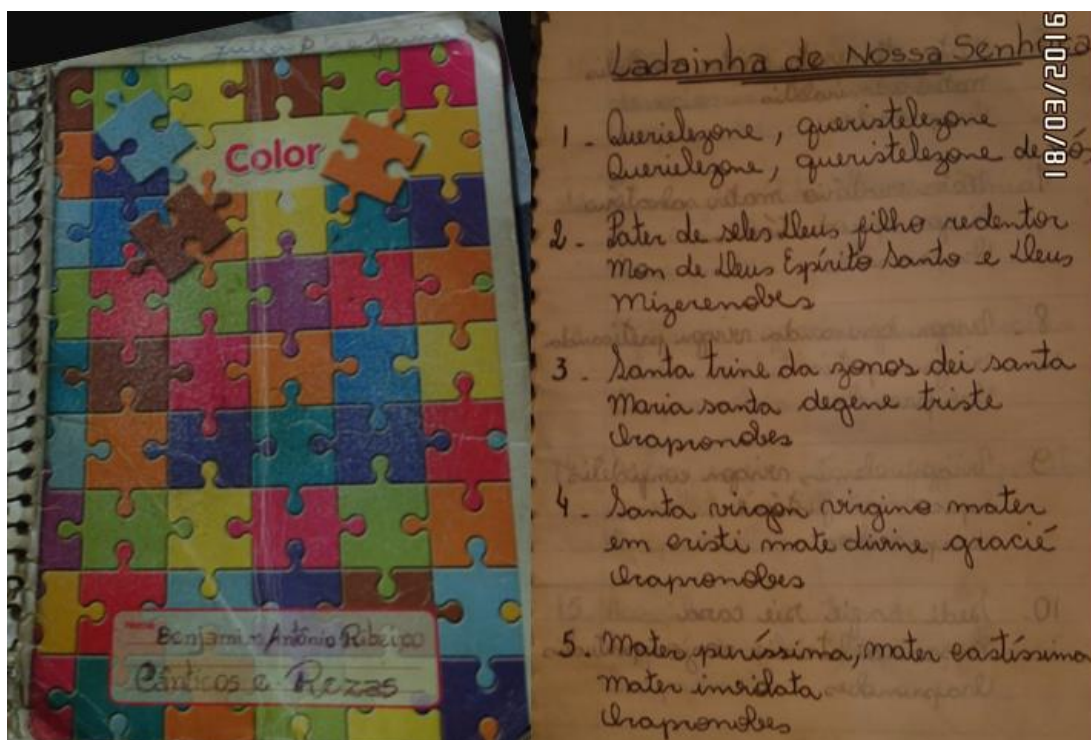 Color
Benjamim Antônio Ribeiro
Cânticos e Rezas
Ladainha de Nossa Senhora
18/03/2016
1 - Querielezone, queristelezone
Querielezone, queristelezone de
2 - Pater de seles Deus filho redentor
mon de Deus Espírito Santo e Deus
mizerenobes
3 - Santa trine da zonos dei santa
Maria santa degene triste
Orapronobes
4 - Santa virgon virgino mater
em cristi mate divine gracié
Orapronobes
5 - Mater puríssima, mater castíssima
mater invidata
Orapronobes